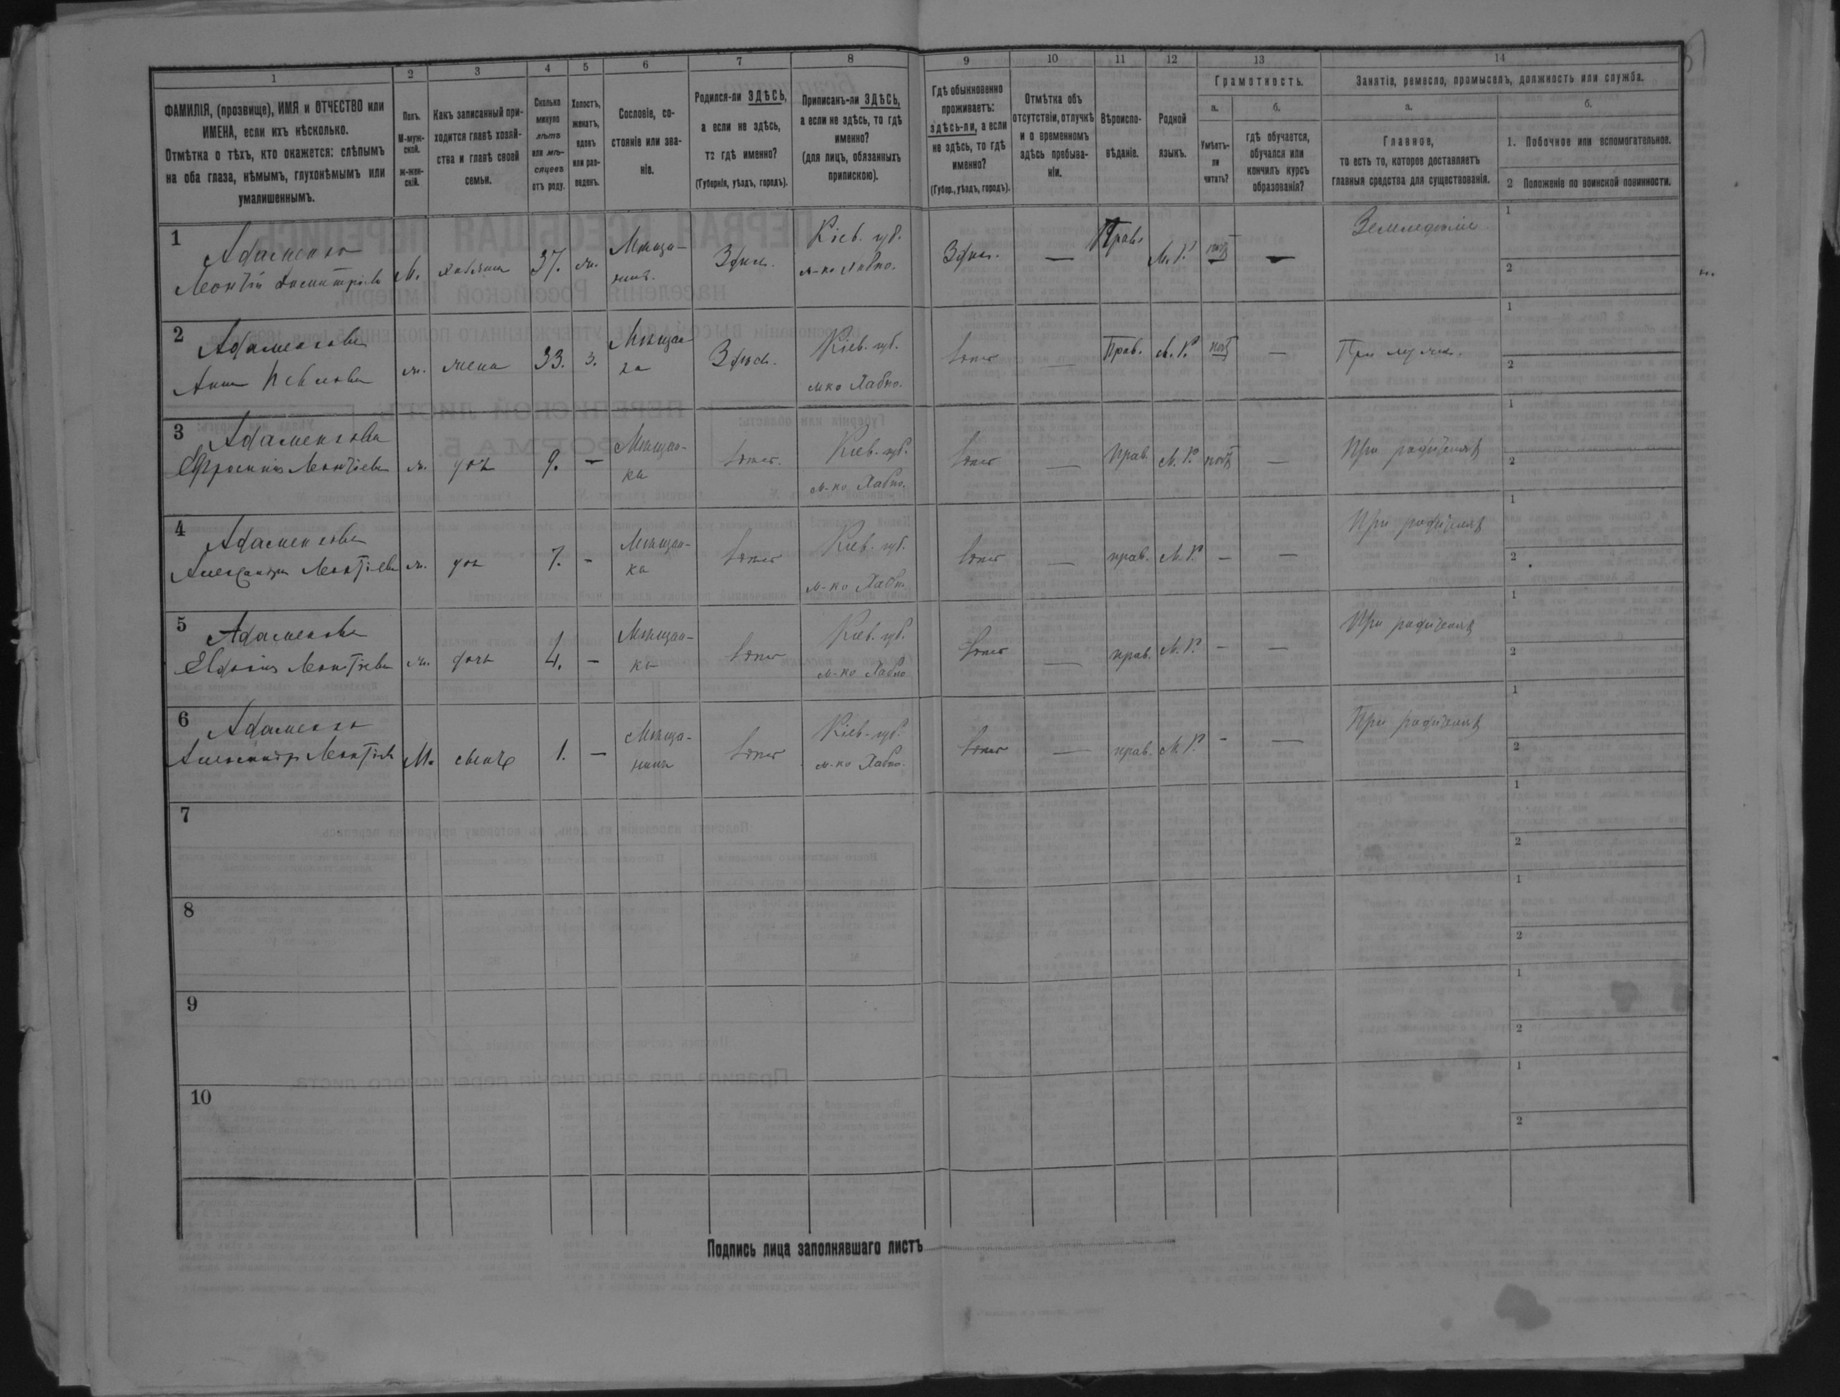 1
2
3
4
5
6
7
8
9
10
11
12
13
14
ФАМИЛІЯ, (прозвище), ИМЯ и ОТЧЕСТВО или
ИМЕНА, если ихъ нѣсколько.
Отмѣтка о тѣхъ, кто окажется: слѣпымъ
на оба глаза, нѣмымъ, глухонѣмымъ или
умалишеннымъ.
Полъ.
М-муж-
ской.
ж-жен-
скій.
Какъ записанный при-
ходится главѣ хозяй-
ства и главѣ своей
семьи.
Сколько
минуло
лѣтъ
или мѣ-
сяцевъ
отъ роду.
Холостъ,
женатъ,
вдовъ
или раз-
веденъ.
Сословіе, со-
стояніе или зва-
ніе.
Родился-ли ЗДѢСЬ,
а если не здѣсь,
то гдѣ именно?
(Губернія, уѣздъ, городъ).
Приписанъ-ли ЗДѢСЬ,
а если не здѣсь, то гдѣ
именно?
(для лицъ, обязанныхъ
припискою).
Гдѣ обыкновенно
проживаетъ:
здѣсь-ли, а если
не здѣсь, то гдѣ
именно?
(Губер., уѣздъ, городъ).
Отмѣтка объ
отсутствіи, отлучкѣ
и о временномъ
здѣсь пребыва-
ніи.
Вѣроиспо-
вѣданіе.
Родной
языкъ.
Грамотность.
а.
Умѣетъ-
ли
читать?
б.
гдѣ обучается,
обучался или
кончилъ курсъ
образованія?
Занятія, ремесло, промыселъ, должность или служба.
а.
Главное,
то есть то, которое доставляетъ
главныя средства для существованія.
б.
1. Побочное или вспомогательное.
2 Положеніе по воинской повинности.
1
Адаменко
Леонтій Димитріевъ
М.
хозяинъ
37.
ж.
Мѣща-
нинъ.
Здѣсь.
Кіев. губ.
м-ко Хабно.
Здѣсь.
—
Прав.
М. Р.
нѣтъ
—
Земледѣліе
1
2
2
Адаменкова
Анна Павлова
ж.
жена
33.
з.
Мѣщан-
ка
Здѣсь.
Кіев. губ.
м-ко Хабно.
тоже
—
Прав.
М. Р.
нѣтъ
—
При мужѣ.
1
2
3
Адаменкова
Ефросинія Леонтіева
ж.
дочь
9.
—
Мѣщан-
ка
тоже.
Кіев. губ.
м-ко Хабно.
тоже
—
Прав.
М. Р.
нѣтъ
—
При родителяхъ
1
2
4
Адаменкова
Александра Леонтіева
ж.
дочь
7.
-
Мѣщан-
ка
тоже
Кіев. губ.
м-ко Хабно.
тоже
—
прав.
М. Р.
—
—
При родителяхъ
1
2
5
Адаменкова
Евдокія Леонтіева
ж.
дочь
4.
—
Мѣщан-
ка
тоже
Кіев. губ.
м-ко Хабно
тоже
—
прав.
М. Р.
-
—
При родителяхъ
1
2
6
Адаменко
Александръ Леонтіевъ
М.
сынъ
1.
—
Мѣща-
нинъ
тоже
Кіев. губ.
м-ко Хабно.
тоже
—
прав.
М. Р.
-
—
При родителяхъ
1
2
7
1
2
8
1
2
9
1
2
10
1
2
Подпись лица заполнявшаго листъ